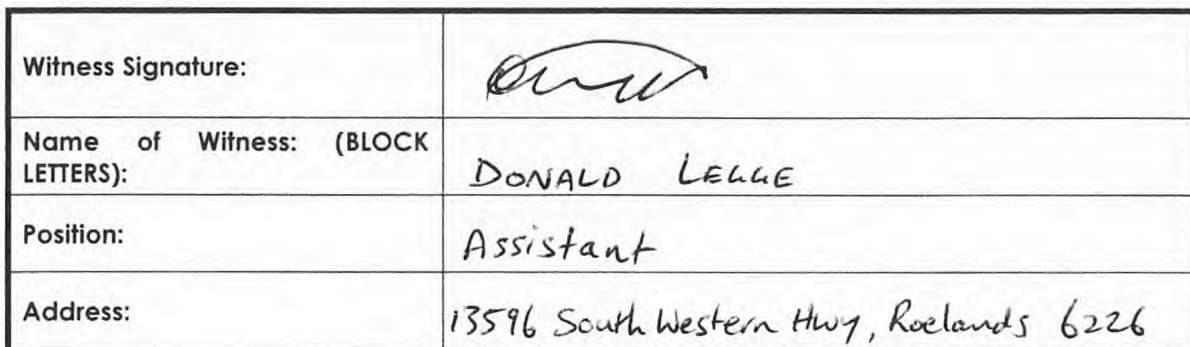 Witness Signature:
Name of Witness: (BLOCK
LETTERS):
DONALD LEGGE
Position:
Assistant
Address:
13596 South Western Hwy, Roelands 6226